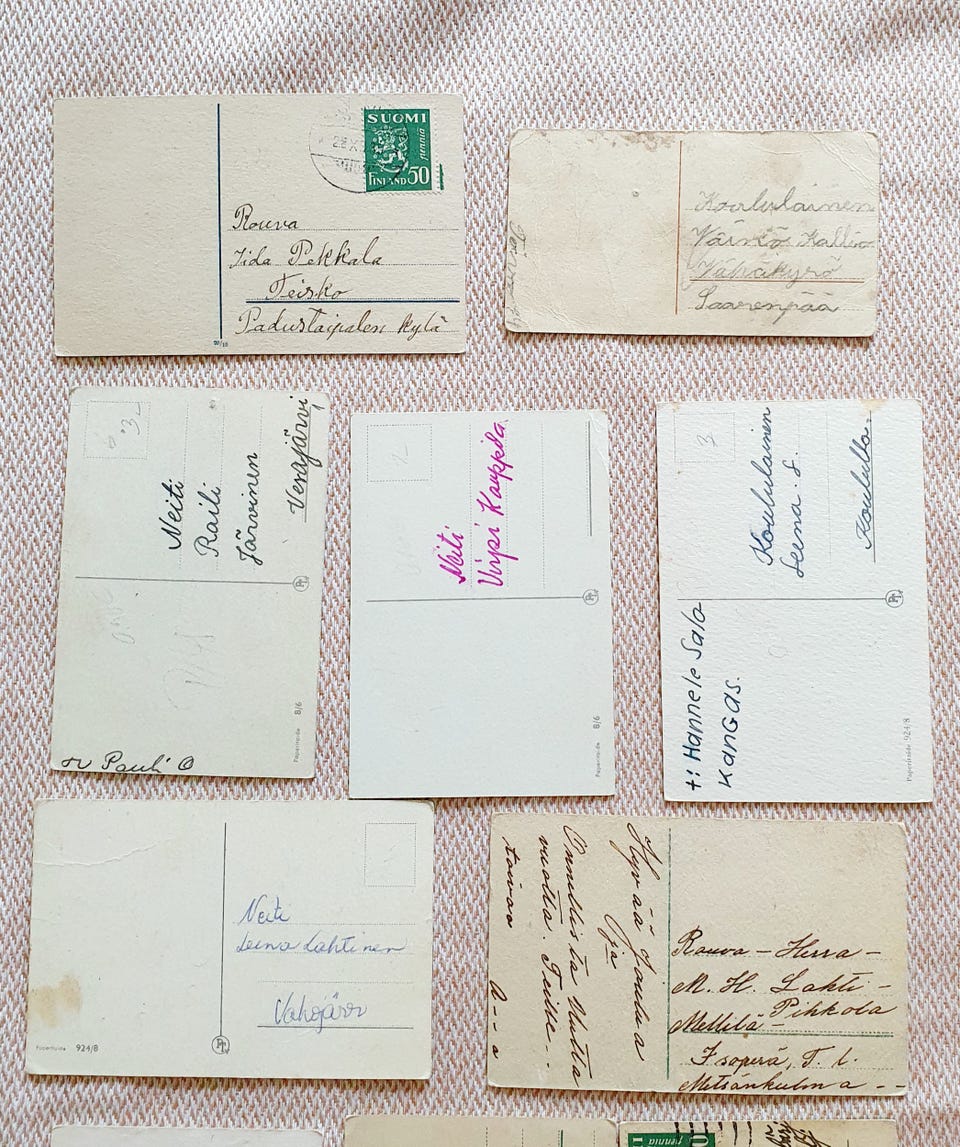 SUOMI
pennia
FINLAND 50
Rouva
Iida Pekkala
Teisko
Padustaipalen kylä
Koululainen
Väinö Kallio
Vähäkyrö
Saarenpää
3
Neiti
Raili
Järvinen
Vesajärvi
Pauli O
Paperitaide 8/6
2
Neiti
Virpi Kauppila
Paperitaide 8/6
3
Koululainen
Leena S.
Koululla.
t: Hannele Salo
Kangas.
Paperitaide 924/8
Neiti
Leena Lahtinen
Vahojärvi
Paperitaide 924/8
Hyvää Joulua
ja
Onnellista Uutta
vuotta. Teille..
toivoo
A--a
Rouva - Herra -
M. H. Lahti -
Pihkola
Mellilä -
Isoperä, T. l.
Metsänkulma - -
pennia